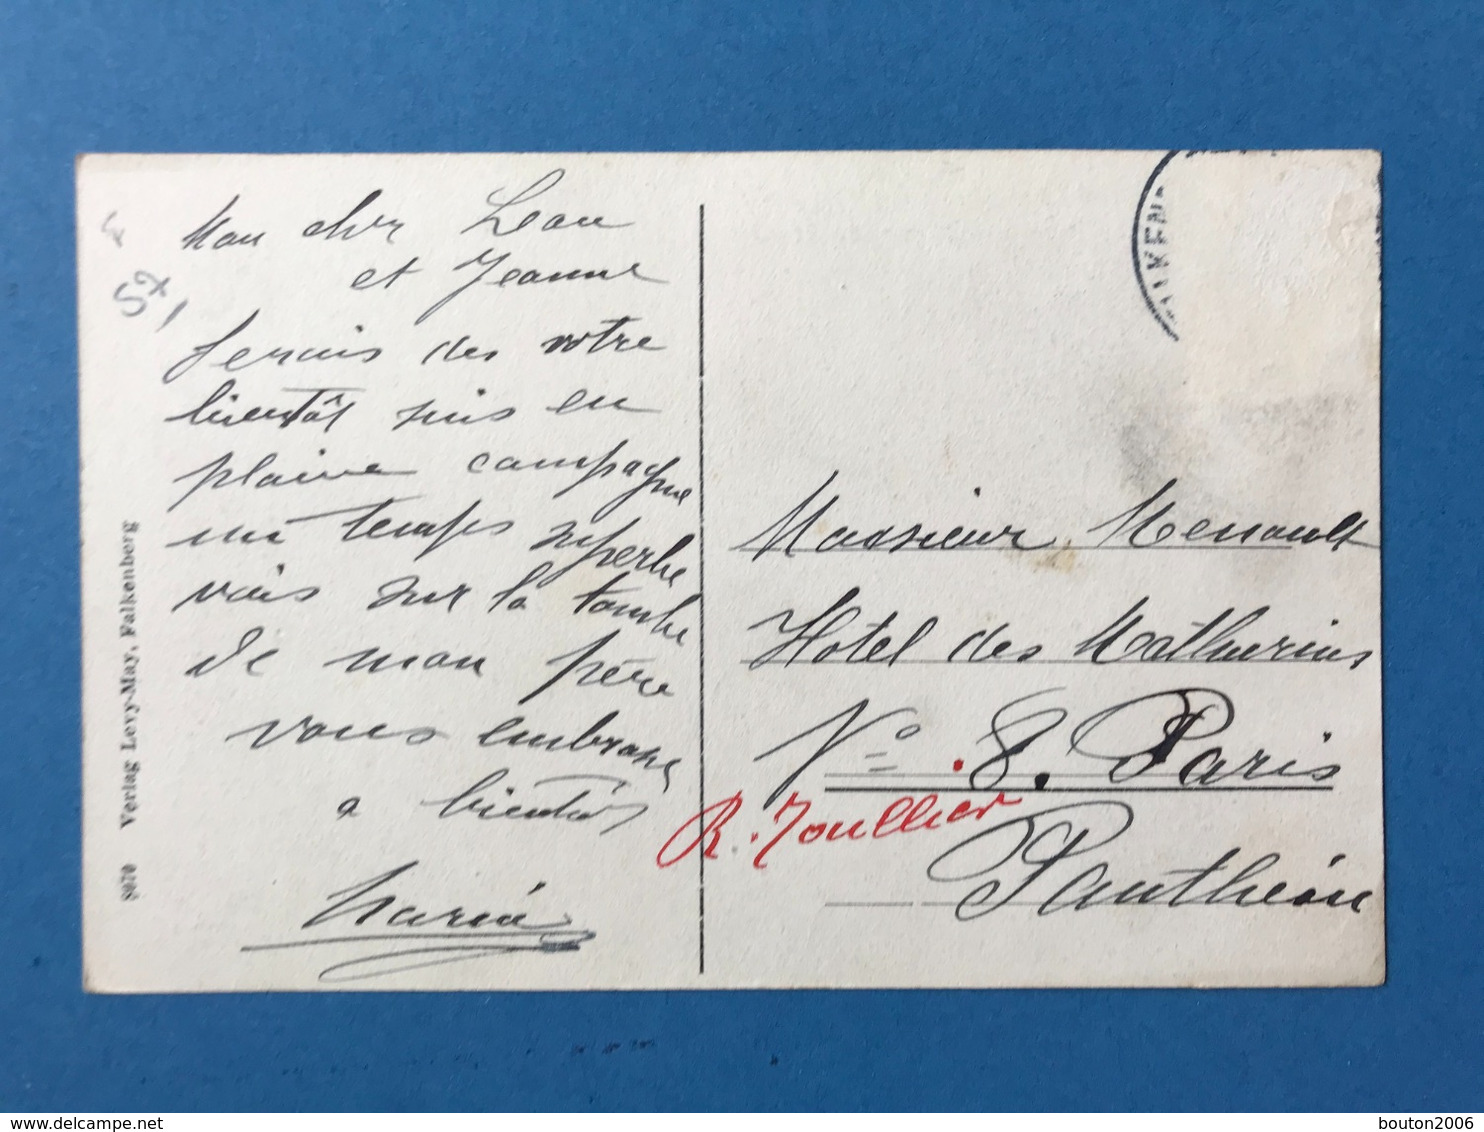 Mon cher Léon
et Jeanne
serais des votre
bientôt suis en
plaine campagne
un temps superbe
vais sur la tombe
de mon père
vous embrasse
a bientôt
Maria
57
Verlag Levy-May, Falkenberg
8070
LKEN
Monsieur Menault
Hotel des Mathurins
N° 8. Paris
R. Toullier
Panthéon
bouton2006